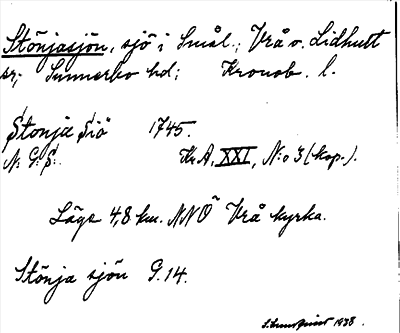 Stönjasjön, sjö i Smål.; Vrå o. Lidhult
sr; Sunnerbo hd; Kronob. l.
Stonja Siö 1745.
N: G: S: Kr. A. XXI, N:o 3 (kop.).
Läge 4,8 km. NNÖ Vrå kyrka.
Stönja sjön G. 14.
1938.